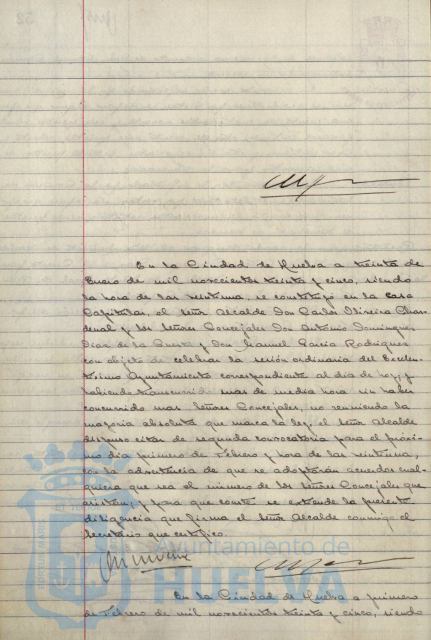 En la Ciudad de Huelva a treinta de
Enero de mil novecientos treinta y cinco, siendo
la hora de las veintiuna, se constituyó en la Casa
Capitular, el Señor Alcalde Don Carlos Oliveira Chardenal
y los Señores Concejales Don Antonio Domínguez
Díaz de la Puerta y Don Manuel García Rodríguez
con objeto de celebrar la sesión ordinaria del Excelentísimo
Ayuntamiento correspondiente al día de hoy, y
habiendo transcurrido mas de media hora sin haber
concurrido mas Señores Concejales, no reuniendo la
mayoría absoluta que marca la ley, el Señor Alcalde
dispuso citar de segunda convocatoria para el próximo
día primero de Febrero y hora de las veintiuna,
con la advertencia de que se adoptarán acuerdos cualquiera
que sea el número de los Señores Concejales que
asistan; y para que conste se extiende la presente
diligencia que firma el Señor Alcalde conmigo el
Secretario que certifico.
Ayuntamiento de
HUELVA
En la Ciudad de Huelva a primero
de Febrero de mil novecientos treinta y cinco, siendo